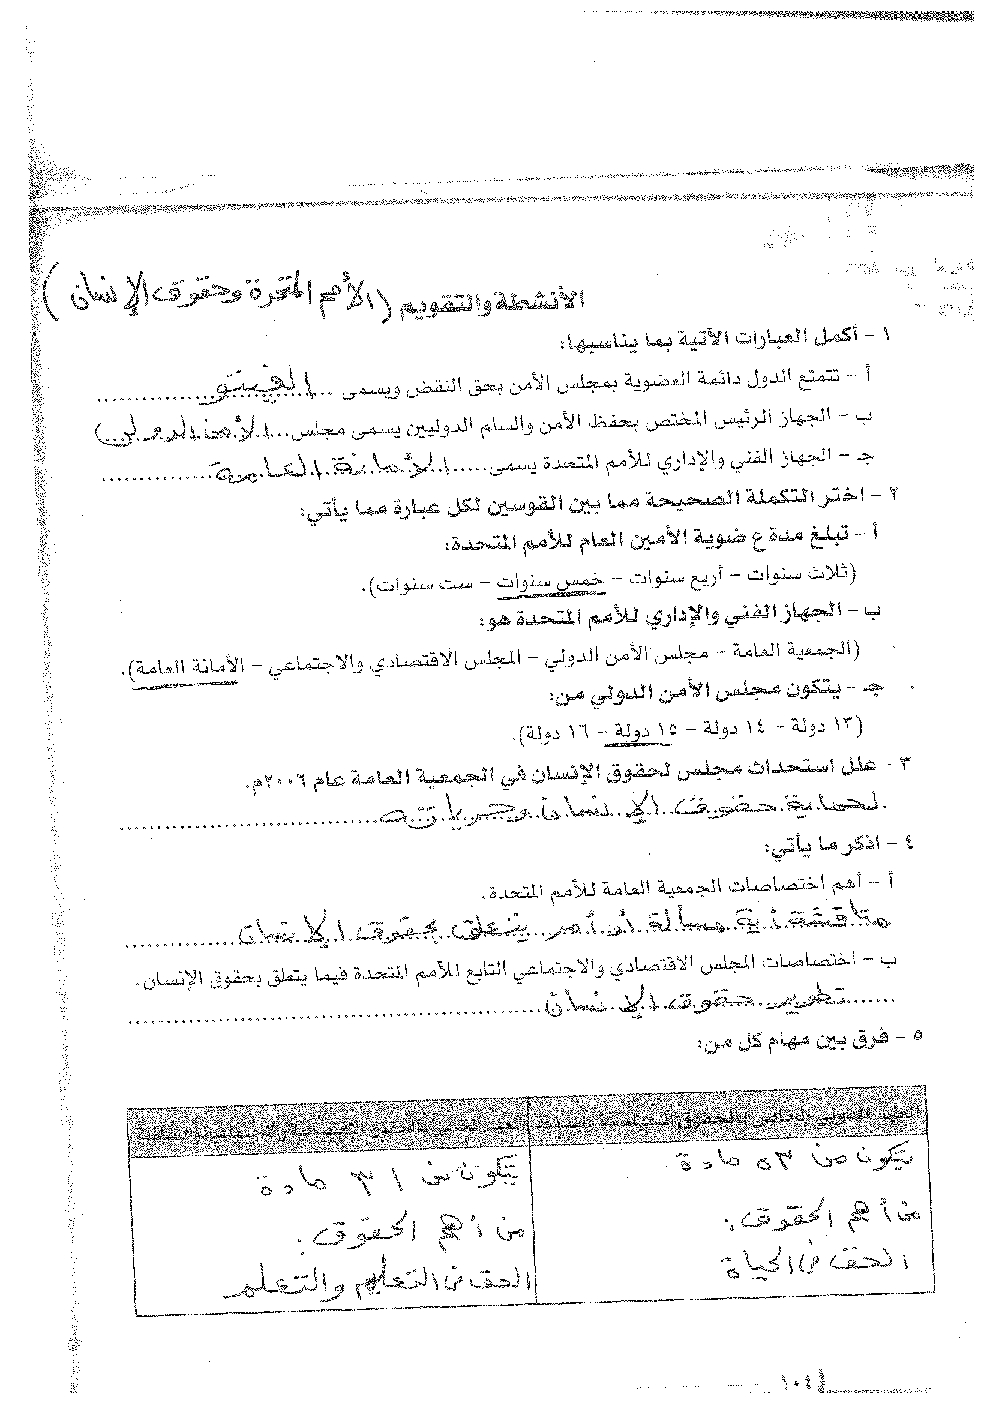 الأنشطة والتقويم (الأمم المتحدة وحقوق الإنسان)
١ - أكمل العبارات الآتية بما يناسبها:
أ - تتمتع الدول دائمة العضوية بمجلس الأمن بحق النقض ويسمى ... الفيتو ...
ب - الجهاز الرئيس المختص بحفظ الأمن والسلم الدوليين يسمى مجلس ... الأمن الدولي
جـ - الجهاز الفني والإداري للأمم المتحدة يسمى ..... الأمانة العامة ...
٢ - اختر التكملة الصحيحة مما بين القوسين لكل عبارة مما يأتي:
أ - تبلغ مدة ع ضوية الأمين العام للأمم المتحدة:
(ثلاث سنوات - أربع سنوات - خمس سنوات - ست سنوات).
ب - الجهاز الفني والإداري للأمم المتحدة هو:
(الجمعية العامة - مجلس الأمن الدولي - المجلس الاقتصادي والاجتماعي - الأمانة العامة).
جـ - يتكون مجلس الأمن الدولي من:
(١٣ دولة - ١٤ دولة - ١٥ دولة - ١٦ دولة).
٣ - علل استحداث مجلس لحقوق الإنسان في الجمعية العامة عام ٢٠٠٦م.
لحماية حقوق الإنسان وحرياته
٤ - اذكر ما يأتي:
أ - أهم اختصاصات الجمعية العامة للأمم المتحدة.
مناقشة أية مسألة أو أمر يتعلق بحقوق الإنسان
ب - اختصاصات المجلس الاقتصادي والاجتماعي التابع للأمم المتحدة فيما يتعلق بحقوق الإنسان.
تطوير حقوق الإنسان
٥ - فرق بين مهام كل من:
يتكون من ٥٣ مادة
من أهم الحقوق:
الحق في الحياة
يتكون من ٣١ مادة
من أهم الحقوق:
الحق في التعليم والتعلم
١٠٤